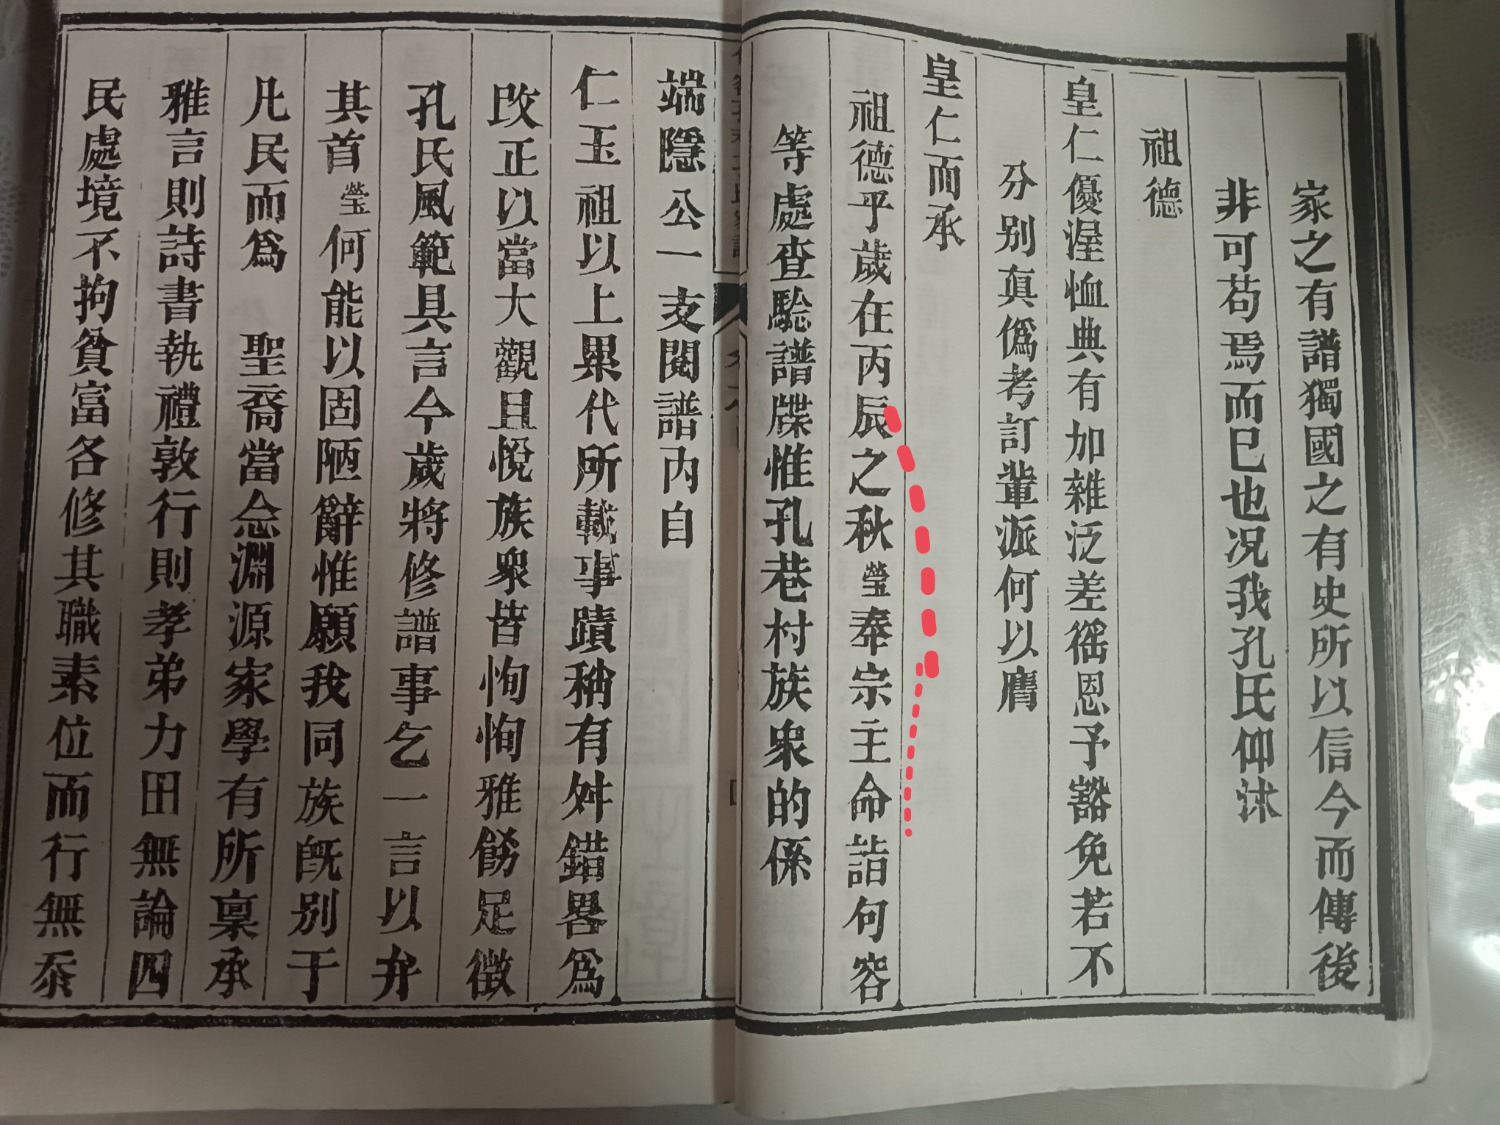 家之有譜獨國之有史所以信今而傳後
非可苟焉而已也况我孔氏仰沭
祖德
皇仁優渥恤典有加雜泛差徭恩予豁免若不
分别真僞考訂輩派何以膺
皇仁而承
祖德乎歲在丙辰之秋瑩奉宗主命詣句容
等處查驗譜牒惟孔巷村族衆的係
端隱公一支閱譜内自
仁玉祖以上累代所載事蹟稍有舛錯畧爲
改正以當大觀且悦族衆皆恂恂雅飭足徵
孔氏風範具言今歲將修譜事乞一言以弁
其首瑩何能以固陋辭惟願我同族旣别于
凡民而爲 聖裔當念淵源家學有所稟承
雅言則詩書執禮敦行則孝弟力田無論四
民處境不拘貧富各修其職素位而行無忝